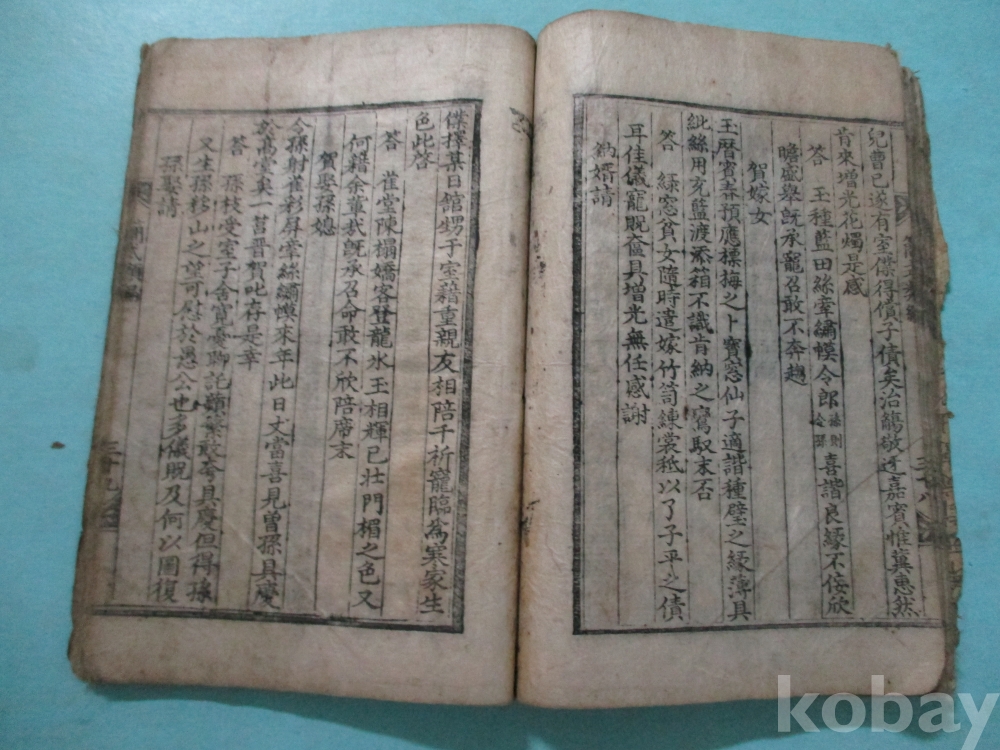 兒曹已遂有室僚得償子債矣治觴敬迓嘉賓惟冀惠然
肯來增光花燭是感
答 王種藍田絲牽繡幙令郎孫則令孫喜諧良緣不侫欣
瞻盛舉旣承寵召敢不奔趨
賀嫁女
王曆賓 預應摽梅之卜寶窓仙子適諧種璧之緣薄具
紕絲用充籃渡添箱不識肯納之 馭末否
答 綠窓貧女隨時遣嫁竹笥練裳秪以了子平之債
耳佳儀寵貺奩具增光無任感謝
納婿請
僕擇某日館甥于室藉重親友相陪千祈寵臨爲寒家生
色此答
答 雀堂陳榻嬌客登龍氷玉相輝已壯門楣之色又
何藉余輩哉旣承召命敢不欣陪席末
賀娶孫媳
令孫射雀彩屛牽絲繡幙來年此日丈當喜見曾孫具慶
於高堂矣一莒晉賀叱存是幸
答 孫枝受室子舍寬憂聊託蘋蘩敢夸具慶但得孫
又生孫移山之望可慰於愚公也多儀貺及何以圖復
孫娶請
三十八
三十九
kobay